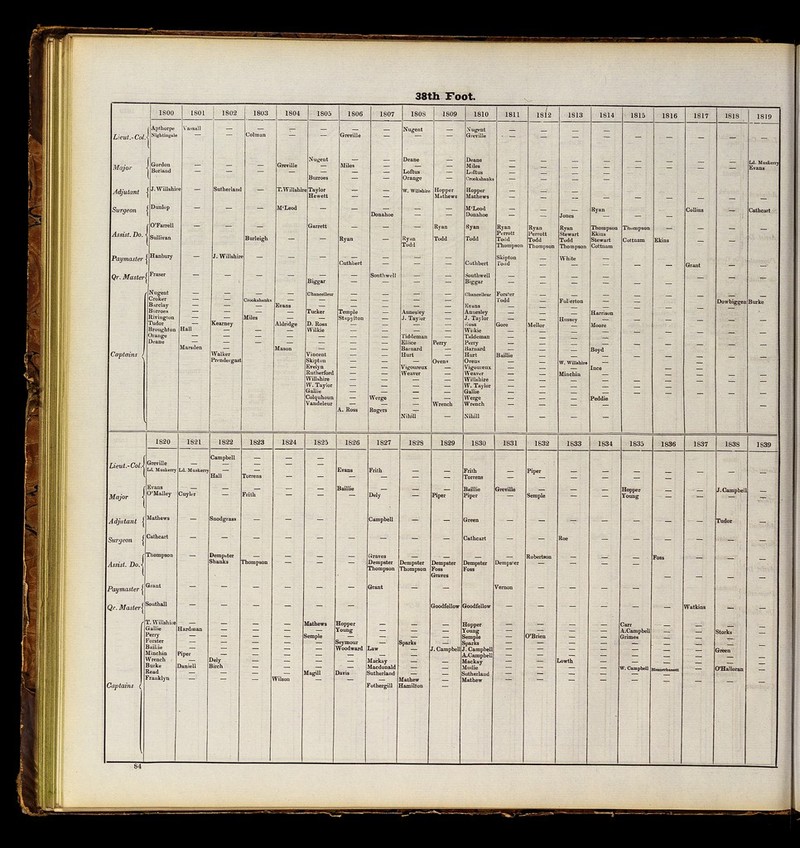 38th Foot.
1800 1801 1802 1803 1804 1805 1806 1807 1808 1809 1810 1811 1812 1813 1814 1815 1816 1817 1818 1819
Lieut.-Col. Apthorpe — — — — — — Nugent — Nugent — — — — — — — — —
Nightingale — — Colman — — Greville — — — Greville — — — — — — — — —
Major Gordon — — — Greville Nugent — — Deane — Deane — — — — — — — — Ld. Muskerry
Borland — — — — — Miles — — — Miles — — — — — — — — Evans
Loftus — Loftus
Burroes — — Orange — Crookshanks
Adjutant J. Willshire — Sutherland — T. Willshire Taylor — — W. Willshire Hopper Hopper — — — — — — — — —
Hewett — — — Mathews Mathews
Surgeon Dunlop — — — M'Leod — — — — — M'Leod — — — Ryan — — Collins — Cathcart
Donahoe — — Donahoe — — Jones
Assist. Do. O'Farrell — — — — Garrett — — — Ryan Ryan Ryan Ryan Ryan Thompson Thompson
Perrott Perrott Stewart Ekins
Sullivan — — Burleigh — — Ryan — Ryan Todd Todd Todd Todd Todd Stewart Cottnam Ekins
Todd Thompson Thompson Thompson Cottnam
Paymaster Hanbury — J. Willshire — — — — — — — — Skipton — White — — — — — —
Cuthbert — — — Cuthbert Todd — — — — — Grant — —
Qr. Master Fraser — — — — — — Southwell — — Southwell — — — — — — — — —
Biggar — — — — Biggar
Captains Nugent — — — — Chancelleur — — — — Chancelleur Forster
Croker — — Crookshanks — — — — — — — Todd — Fullerton — — — — Dowbiggen Burke
Barclay — — — Evans — — — — — Evans
Burroes — — — — Tucker Temple — Annesley — Annesley — — — Harrison
Rivington — — Miles — — Stapylton — J. Taylor — J. Taylor — — Hussey
Tudor — Kearney — Aldridge D. Ross — — — — Ross Gore Mellor — Moore
Broughton Hall — — — Wilkie — — — — Wilkie
Orange — — — — — — — Tiddeman — Tiddeman
Deane — — — — — — — Elliice Perry Perry
Marsden — — Mason — — — Barnard — Barnard — — — Boyd
Walker — — Vincent — — Hurt — Hurt Baillie
Prendergast — — Skipton — — — Ovens Ovens — — W. Willshire
Evelyn — — Vigoureux — Vigoureux — — — Ince
Rutherford — — Weaver — Weaver — — Minchin
Willshire — — — — Willshire
W. Taylor — — — — W. Taylor
Gallie — — — — Gallie
Colquhoun — Werge — — Werge — — — Peddie
Vandeleur — — — Wrench Wrench
A. Ross Rogers —
Nihill — Nihill
1820 1821 1822 1823 1824 1825 1826 1827 1828 1829 1830 1831 1832 1833 1834 1835 1836 1837 1838 1839
Lieut.-Col. Campbell — — —
Greville — — — — — Evans Frith — — Frith — Piper
Ld. Muskerry Ld. Muskerry Hall Torrens — — — — — — Torrens
Major Evans — — — — — Baillie — — — Baillie Greville — — — Hopper — — J. Campbell —
O'Malley Cuyler — Frith — — — Dely — Piper Piper — Semple — — Young
Adjutant Mathews — Snodgrass — — — — Campbell — — Green — — — — — — — Tudor —
Surgeon Cathcart — — — — — — — — — Cathcart — — Roe
Assist. Do. Thompson — Dempster — — — — Graves — — — — Robertson — — — Foss
Shanks Thompson — — — Dempster Dempster Dempster Dempster Dempster
Thompson Thompson Foss Foss
Graves
Paymaster Grant — — — — — — Grant — — — Vernon
Qr. Master Southall — — — — — — — — Goodfellow Goodfellow — — — — — — Watkins — —
Captains T. Willshire — — — — Mathews Hopper — — — Hopper — — — — Carr
Gallie Hardman — — — — Young — — — Young — — — — A. Campbell — — Stocks
Perry — — — — Semple — — — — Semple — O'Brien — — Grimes
Forster — — — — — Seymour — Sparks — Sparks
Baillie — — — — — Woodward Law — J. Campbell J. Campbell — — — — — — — Green
Minchin Piper — — — — — — — — A. Campbell
Wrench — Dely — — — — Mackay — — Mackay — — Lowth
Burke Daniell Birch — — — — Macdonald — — Moslie — — — — W. Campbell — — O'Halloran
Read — — — — Magill Davis Sutherland — — Sutherland
Franklyn — — — Wilson — — — Mathew — Mathew
Fothergill Hamilton —
84